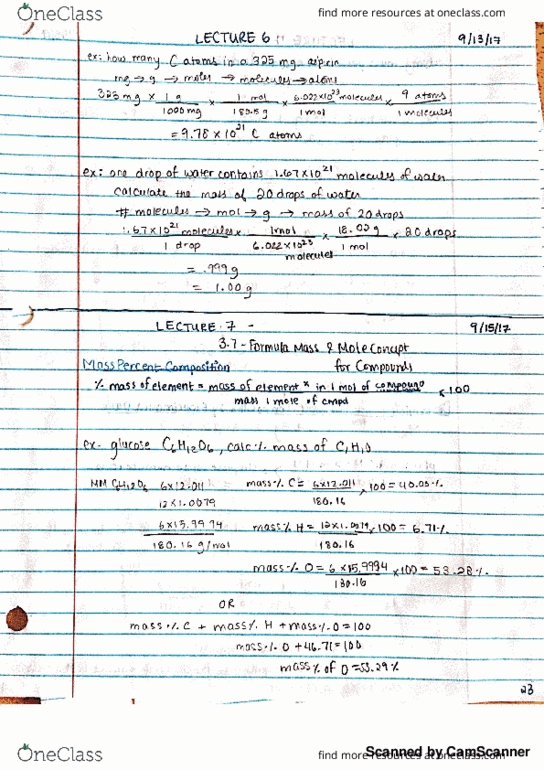 OneClass
find more resources at oneclass.com
LECTURE 6
9/13/17
ex: how many C atoms in a 325 mg aspirin
mg → g → moles → molecules → atoms
325 mg × 1 g / 1000 mg × 1 mol / 180.15 g × 6.022×10^23 molecules / 1 mol × 9 atoms / 1 molecules
= 9.78 × 10^21 C atoms
ex: one drop of water contains 1.67×10^21 molecules of water
calculate the mass of 20 drops of water
# molecules → mol → g → mass of 20 drops
1.67×10^21 molecules / 1 drop × 1 mol / 6.022×10^23 molecules × 18.02 g / 1 mol × 20 drops
= .999 g
= 1.00 g
LECTURE 7 -
9/15/17
3.7 - Formula Mass & Mole Concept
for Compounds
Mass Percent Composition
% mass of element = mass of element x in 1 mol of compound / mass 1 mole of cmpd × 100
ex. glucose C6H12O6, calc % mass of C, H, O
MM C6H12O6 6×12.011
12×1.0079
6×15.9994
180.16 g/mol
mass % C = 6×12.011 / 180.16 × 100 = 40.00%
mass % H = 12×1.0079 / 180.16 × 100 = 6.71%
mass % O = 6×15.9994 / 180.16 × 100 = 53.28%
OR
mass % C + mass % H + mass % O = 100
mass % O + 46.71 = 100
mass % of O = 53.29%
23
Scanned by CamScanner
OneClass
find more resources at oneclass.com